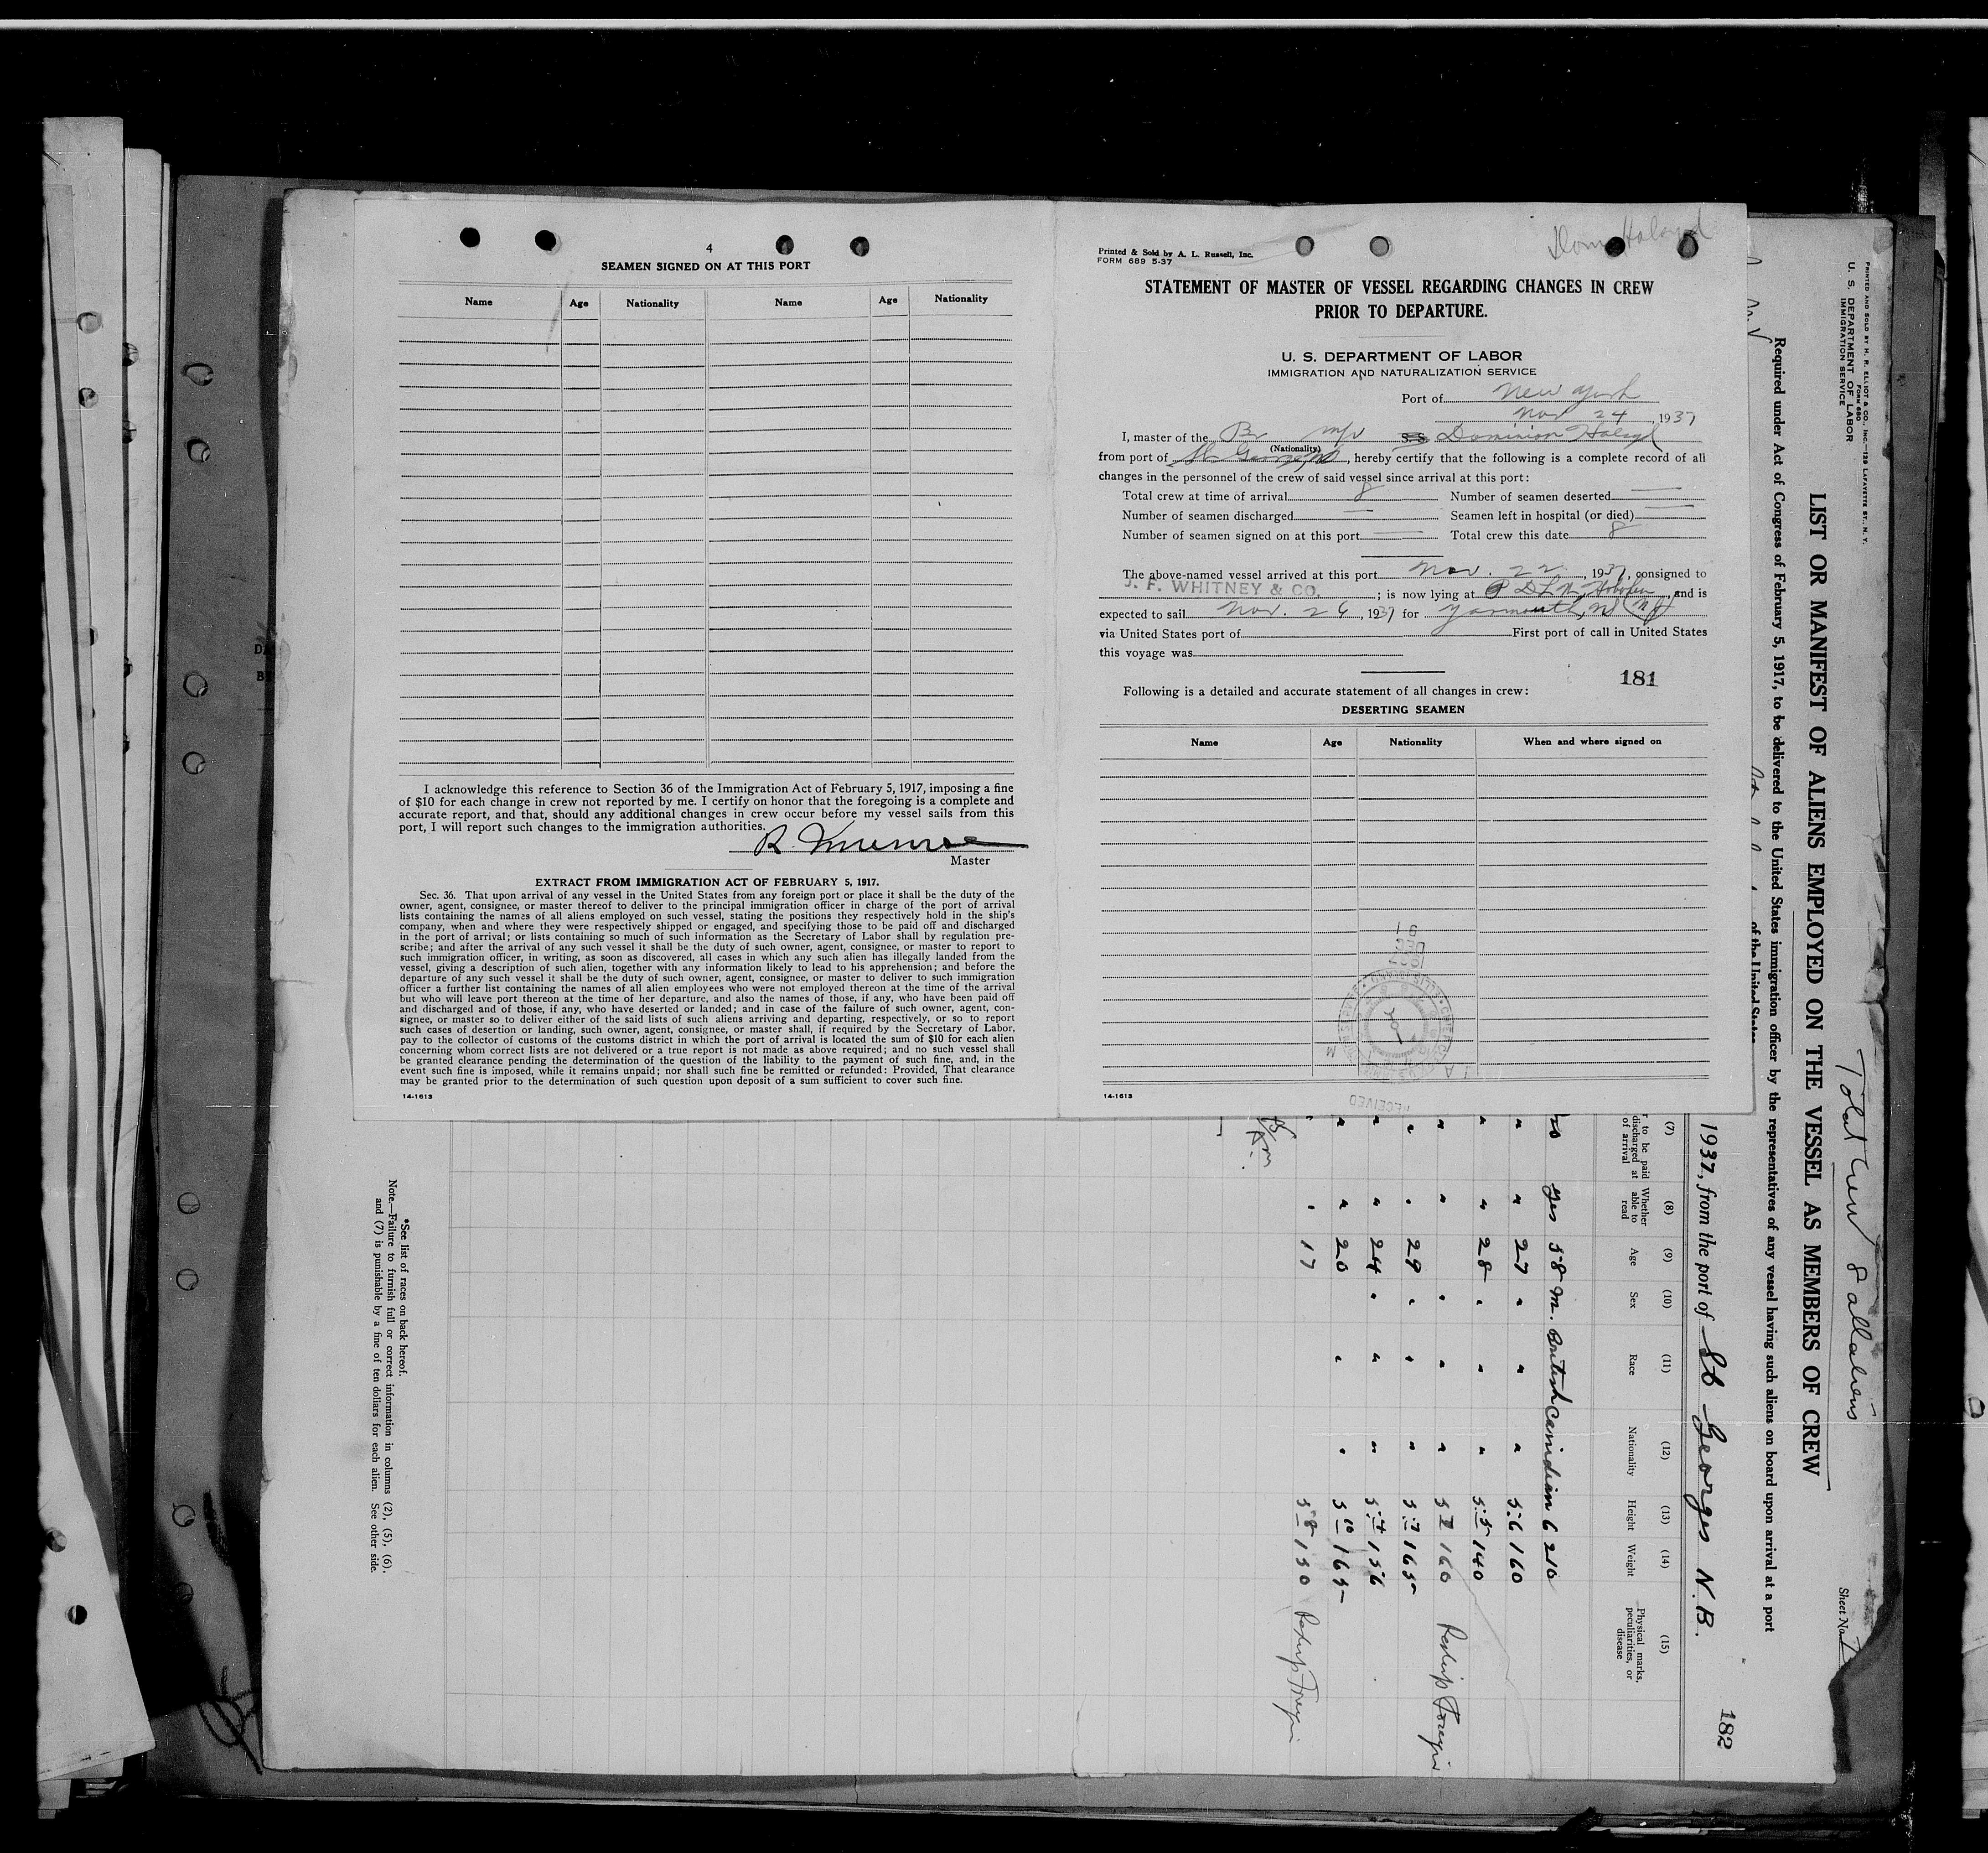 4
SEAMEN SIGNED ON AT THIS PORT
Name Age Nationality Name Age Nationality
I acknowledge this reference to Section 36 of the Immigration Act of February 5, 1917, imposing a fine
of $10 for each change in crew not reported by me. I certify on honor that the foregoing is a complete and
accurate report, and that, should any additional changes in crew occur before my vessel sails from this
port, I will report such changes to the immigration authorities.
R. Munroe
Master
EXTRACT FROM IMMIGRATION ACT OF FEBRUARY 5, 1917.
Sec. 36. That upon arrival of any vessel in the United States from any foreign port or place it shall be the duty of the
owner, agent, consignee, or master thereof to deliver to the principal immigration officer in charge of the port of arrival
lists containing the names of all aliens employed on such vessel, stating the positions they respectively hold in the ship's
company, when and where they were respectively shipped or engaged, and specifying those to be paid off and discharged
in the port of arrival; or lists containing so much of such information as the Secretary of Labor shall by regulation pre-
scribe; and after the arrival of any such vessel it shall be the duty of such owner, agent, consignee, or master to report to
such immigration officer, in writing, as soon as discovered, all cases in which any such alien has illegally landed from the
vessel, giving a description of such alien, together with any information likely to lead to his apprehension; and before the
departure of any such vessel it shall be the duty of such owner, agent, consignee, or master to deliver to such immigration
officer a further list containing the names of all alien employees who were not employed thereon at the time of the arrival
but who will leave port thereon at the time of her departure, and also the names of those, if any, who have been paid off
and discharged and of those, if any, who have deserted or landed; and in case of the failure of such owner, agent, con-
signee, or master so to deliver either of the said lists of such aliens arriving and departing, respectively, or so to report
such cases of desertion or landing, such owner, agent, consignee, or master shall, if required by the Secretary of Labor,
pay to the collector of customs of the customs district in which the port of arrival is located the sum of $10 for each alien
concerning whom correct lists are not delivered or a true report is not made as above required; and no such vessel shall
be granted clearance pending the determination of the question of the liability to the payment of such fine, and, in the
event such fine is imposed, while it remains unpaid; nor shall such fine be remitted or refunded: Provided, That clearance
may be granted prior to the determination of such question upon deposit of a sum sufficient to cover such fine.
14-1613
Dom Halsyd
Printed & Sold by A. L. Russell, Inc.
FORM 689 5-37
STATEMENT OF MASTER OF VESSEL REGARDING CHANGES IN CREW
PRIOR TO DEPARTURE.
U. S. DEPARTMENT OF LABOR
IMMIGRATION AND NATURALIZATION SERVICE
Port of New York
Nov 24, 1937
I, master of the Br M/V S. S. Dominion Halsyd
(Nationality)
from port of St Georges NB, hereby certify that the following is a complete record of all
changes in the personnel of the crew of said vessel since arrival at this port:
Total crew at time of arrival 8 Number of seamen deserted —
Number of seamen discharged — Seamen left in hospital (or died) —
Number of seamen signed on at this port — Total crew this date 8
The above-named vessel arrived at this port Nov. 22, 1937, consigned to
J. F. WHITNEY & CO. ; is now lying at P DLW, Hoboken, and is
expected to sail Nov. 26, 1937 for Yarmouth, NS
via United States port of First port of call in United States
this voyage was
181
Following is a detailed and accurate statement of all changes in crew:
DESERTING SEAMEN
Name Age Nationality When and where signed on
1937
DEC
RECEIVED
14-1613
PRINTED AND SOLD BY H. R. ELLIOT & CO., INC.—129 LAFAYETTE ST., N. Y.
FORM 680
U. S. DEPARTMENT OF LABOR
IMMIGRATION SERVICE
Total Crew 8 all aliens
Sheet No. 1
LIST OR MANIFEST OF ALIENS EMPLOYED ON THE VESSEL AS MEMBERS OF CREW
Required under Act of Congress of February 5, 1917, to be delivered to the United States immigration officer by the representatives of any vessel having such aliens on board upon arrival at a port
of the United States
1937, from the port of St Georges N.B.
182
(7) (8) (9) (10) (11) (12) (13) (14) (15)
to be paid discharged at of arrival Whether able to read Age Sex Race Nationality Height Weight Physical marks, peculiarities, or disease
no yes 58 m. British Canadian 6 210
" " 27 " " " 5.6 160
" " 28 " " " 5.5 140
" " " " " 5 7 160 Reship Foreign
" " 29 " " " 5.7 165
" " 24 " " " 5.4 156
" " 20 " " 5 10 165
" " 17 5 8 150 Reship Foreign
*See list of races on back hereof.
Note.—Failure to furnish full or correct information in columns (2), (5), (6),
and (7) is punishable by a fine of ten dollars for each alien. See other side.